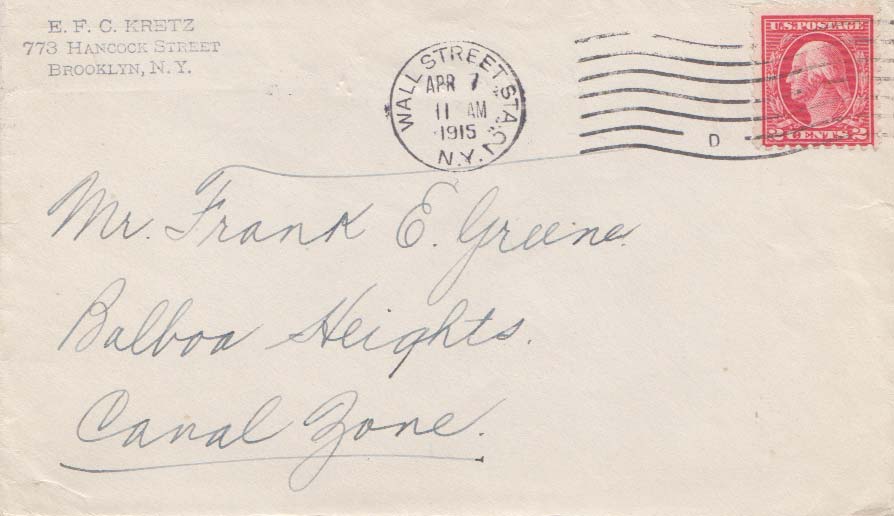 E. F. C. KRETZ
773 HANCOCK STREET
BROOKLYN, N. Y.
WALL STREET STA.
APR 7
11 AM
1915
N.Y.
D
U.S. POSTAGE
2 CENTS 2
Mr. Frank E. Greene.
Balboa Heights.
Canal Zone.